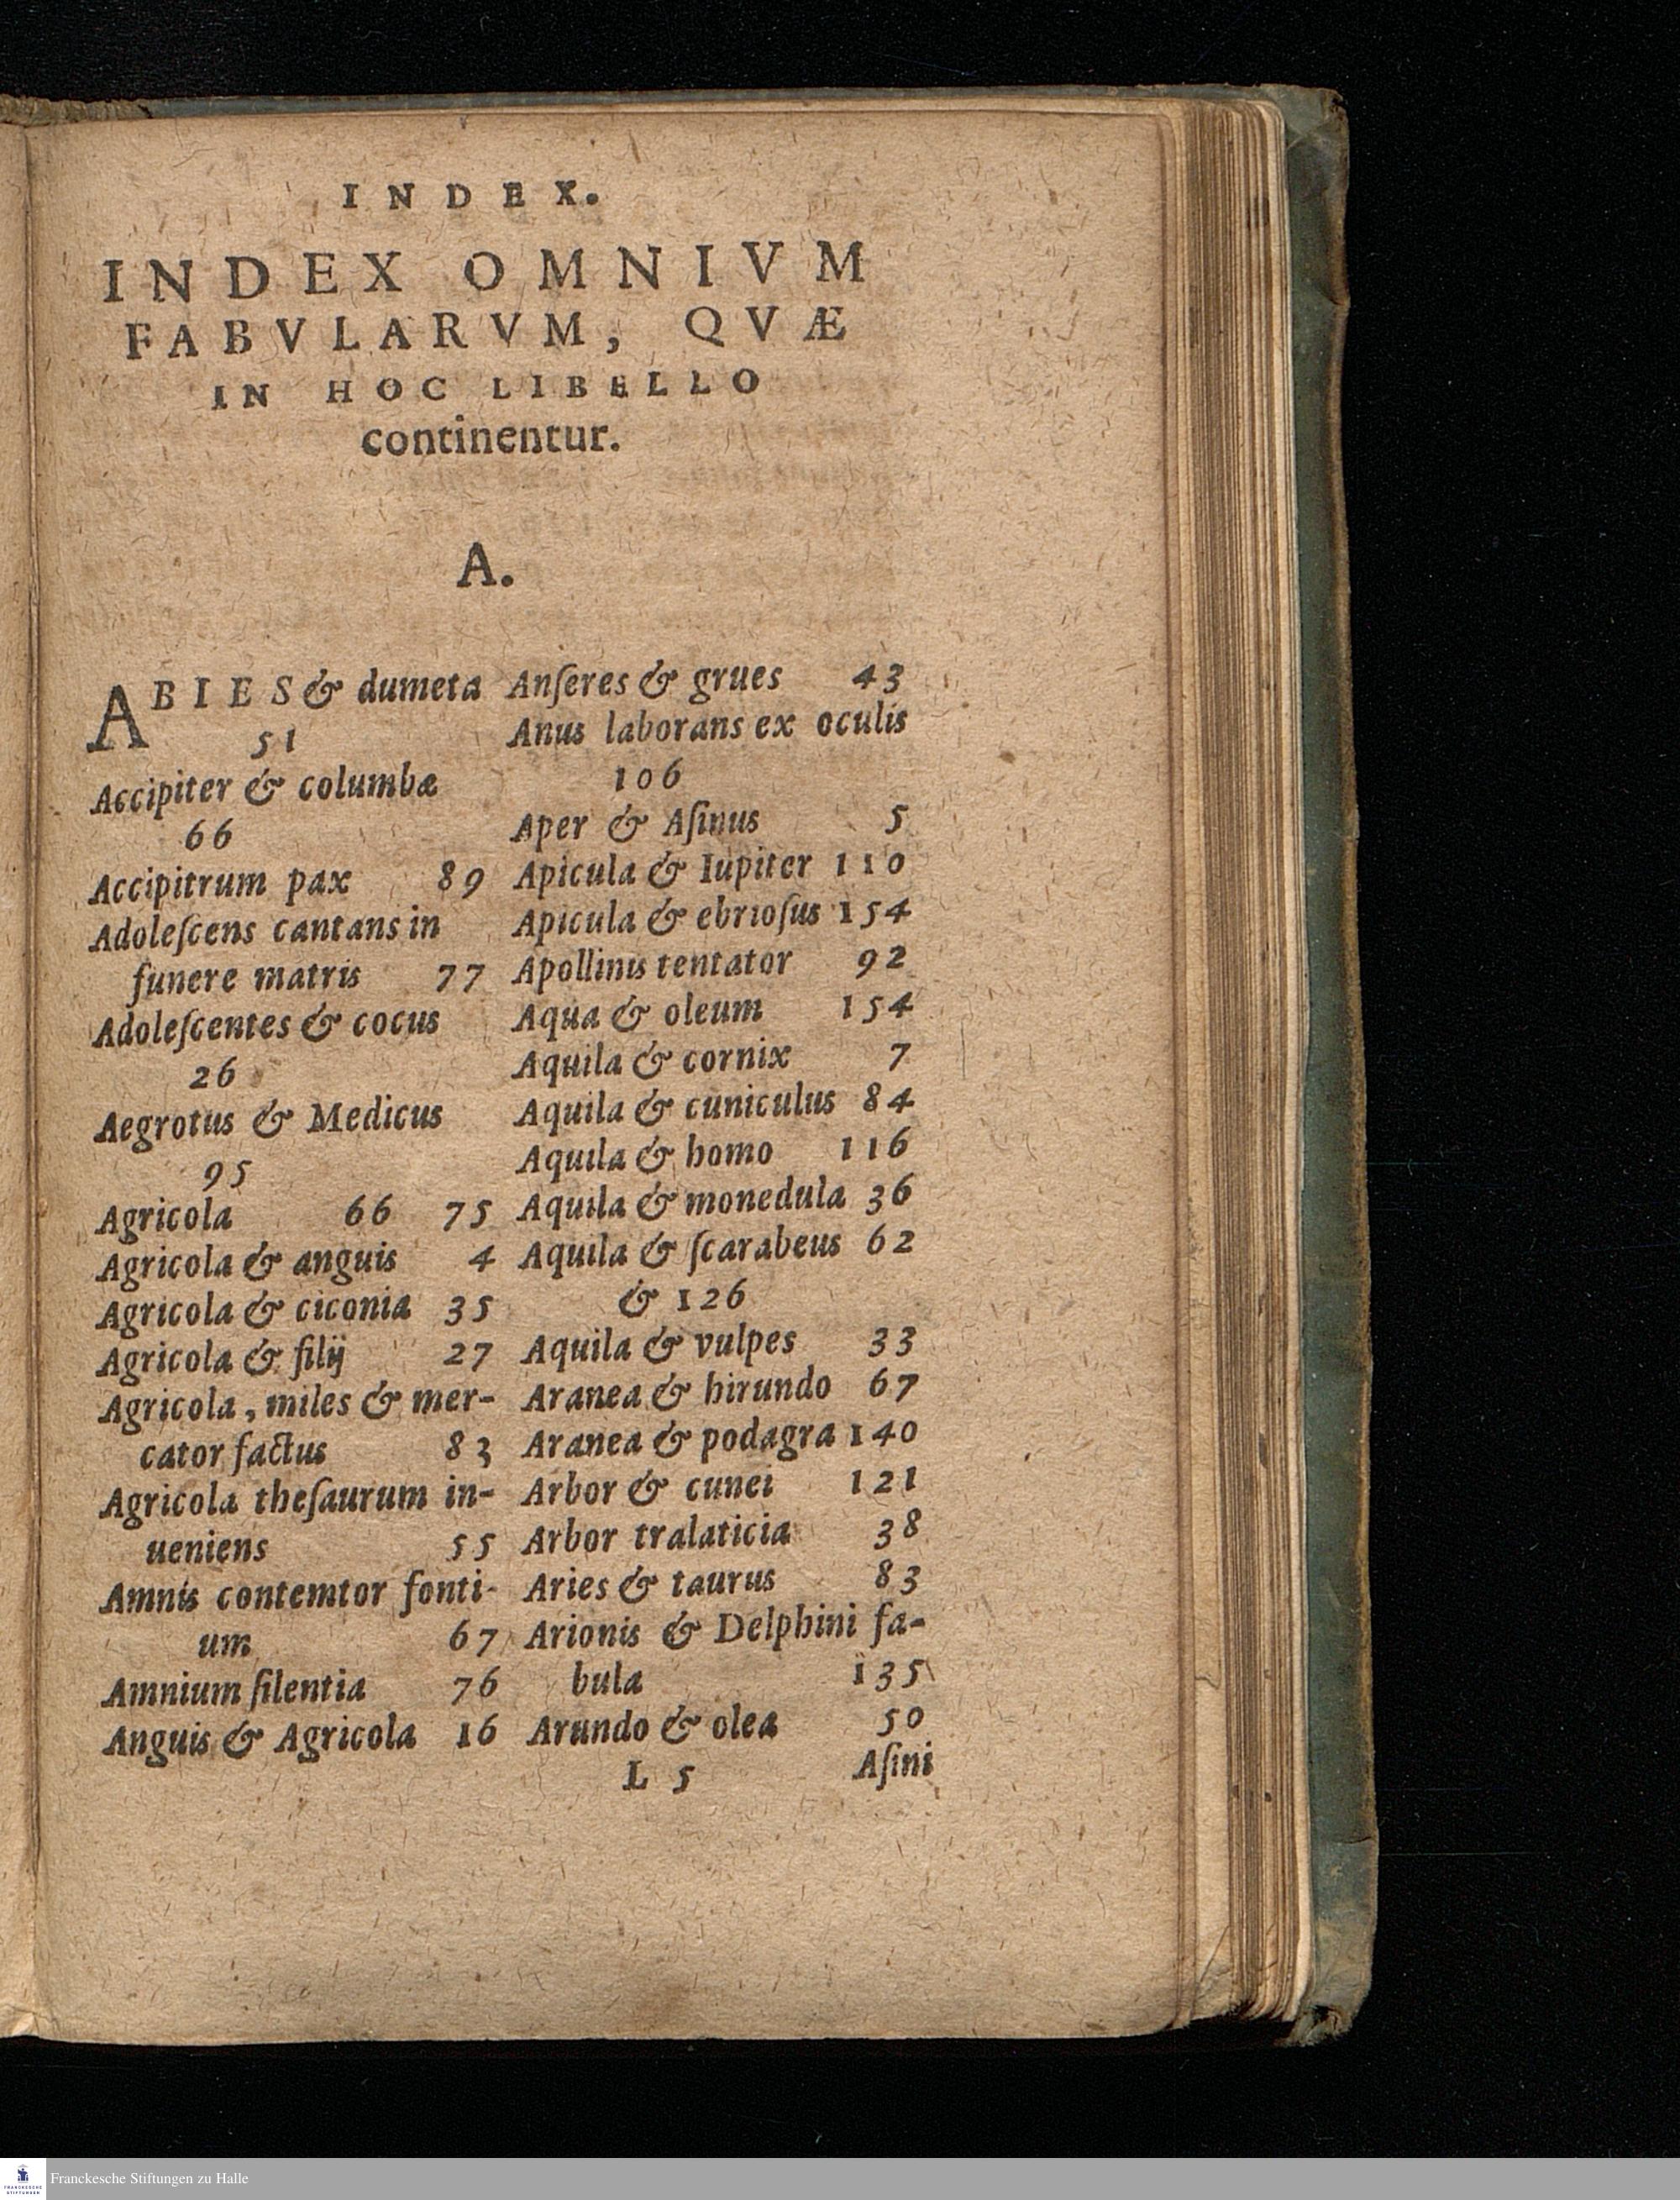 INDEX.
INDEX OMNIVM
FABVLARVM, QVÆ
IN HOC LIBELLO
continentur.
A.
ABIES & dumeta
51
Accipiter & columbæ
66
Accipitrum pax 89
Adoleſcens cantans in
funere matris 77
Adoleſcentes & cocus
26
Aegrotus & Medicus
95
Agricola 66 75
Agricola & anguis 4
Agricola & ciconia 35
Agricola & filij 27
Agricola, miles & mer-
cator factus 83
Agricola theſaurum in-
ueniens 55
Amnis contemtor fonti-
um 67
Amnium ſilentia 76
Anguis & Agricola 16
Anſeres & grues 43
Anus laborans ex oculis
106
Aper & Aſinus 5
Apicula & Iupiter 110
Apicula & ebrioſus 154
Apollinis tentator 92
Aqua & oleum 154
Aquila & cornix 7
Aquila & cuniculus 84
Aquila & homo 116
Aquila & monedula 36
Aquila & ſcarabeus 62
& 126
Aquila & vulpes 33
Aranea & hirundo 67
Aranea & podagra 140
Arbor & cunei 121
Arbor tralaticia 38
Aries & taurus 83
Arionis & Delphini fa-
bula 135
Arundo & olea 50
L 5 Aſini
FRANCKESCHE
STIFTUNGEN
Franckesche Stiftungen zu Halle